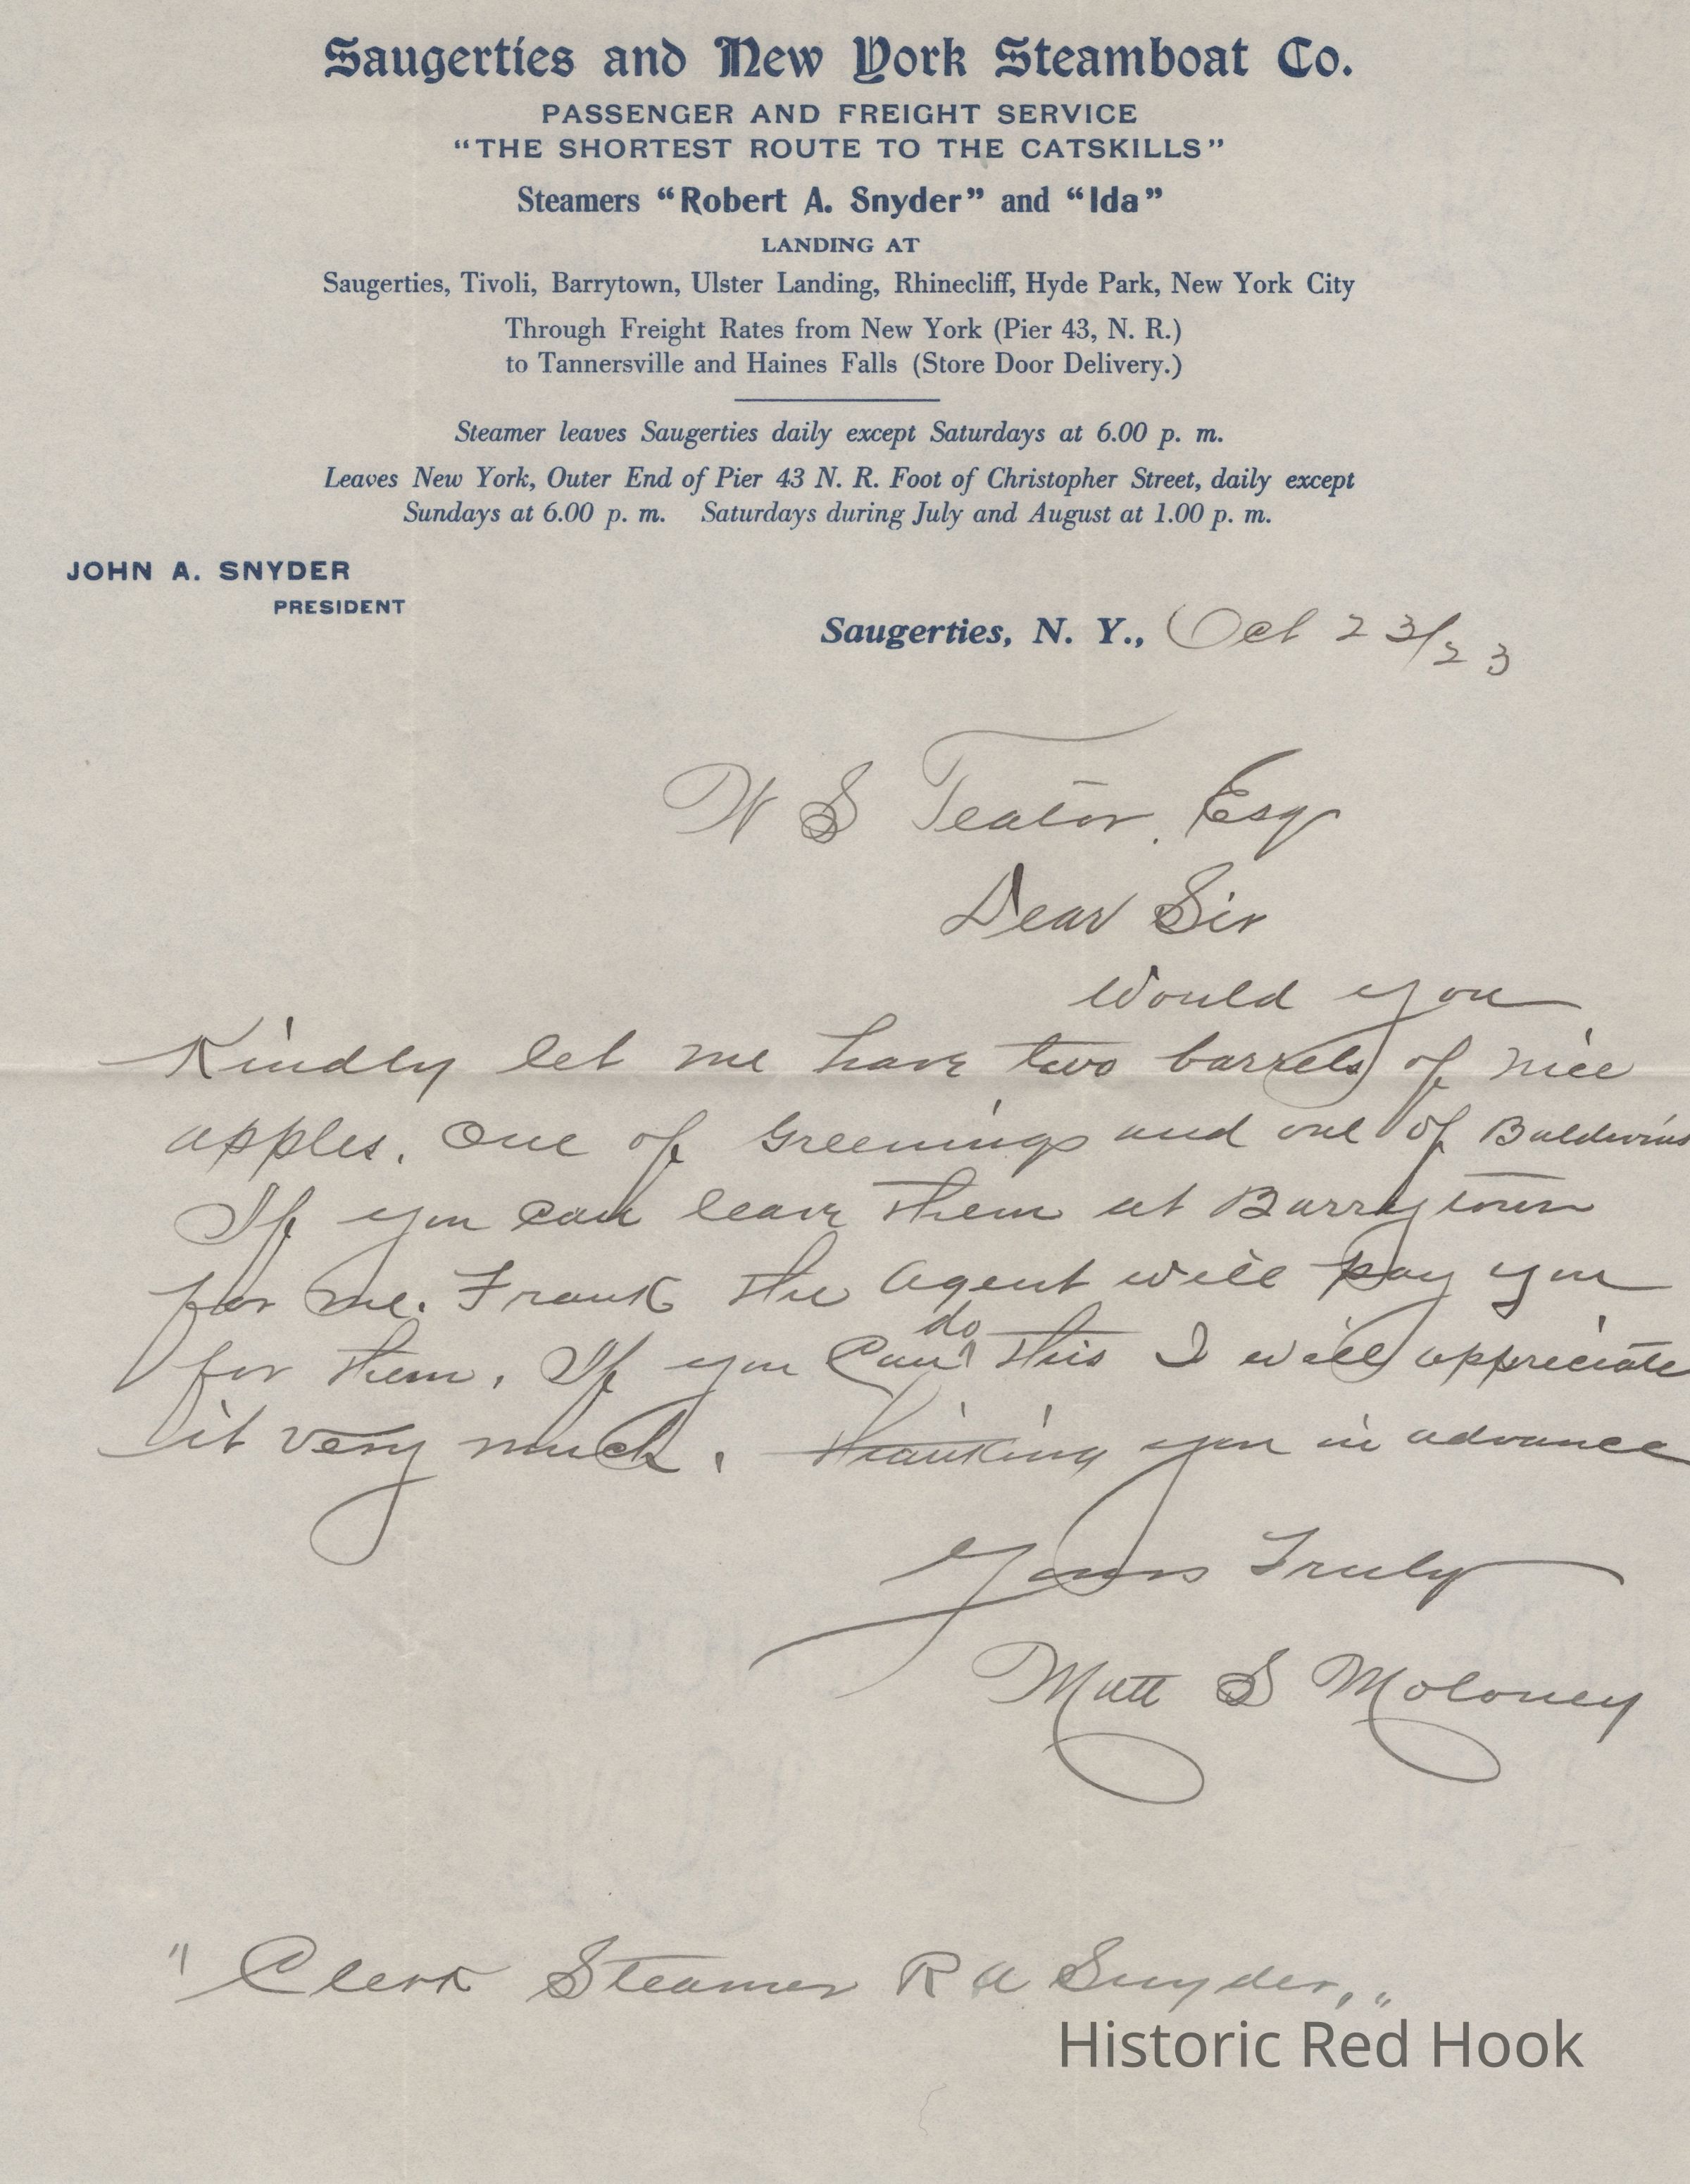 Saugerties and New York Steamboat Co.
PASSENGER AND FREIGHT SERVICE
“THE SHORTEST ROUTE TO THE CATSKILLS”
Steamers “Robert A. Snyder” and “Ida”
LANDING AT
Saugerties, Tivoli, Barrytown, Ulster Landing, Rhinecliff, Hyde Park, New York City
Through Freight Rates from New York (Pier 43, N. R.)
to Tannersville and Haines Falls (Store Door Delivery.)
Steamer leaves Saugerties daily except Saturdays at 6.00 p. m.
Leaves New York, Outer End of Pier 43 N. R. Foot of Christopher Street, daily except
Sundays at 6.00 p. m. Saturdays during July and August at 1.00 p. m.
JOHN A. SNYDER
PRESIDENT
Saugerties, N. Y., Oct 23/23
W S Teator. Esq
Dear Sir
Would you
Kindly let me have two barrels of nice
apples. One of Greenings and one of Baldwins
If you can leave them at Barrytown
for me. Frank the Agent will pay you
for them. If you can do this I will appreciate
it very much. Thanking you in advance
Yours Truly
Matt S Moloney
"Clerk Steamer R A Snyder,"
Historic Red Hook